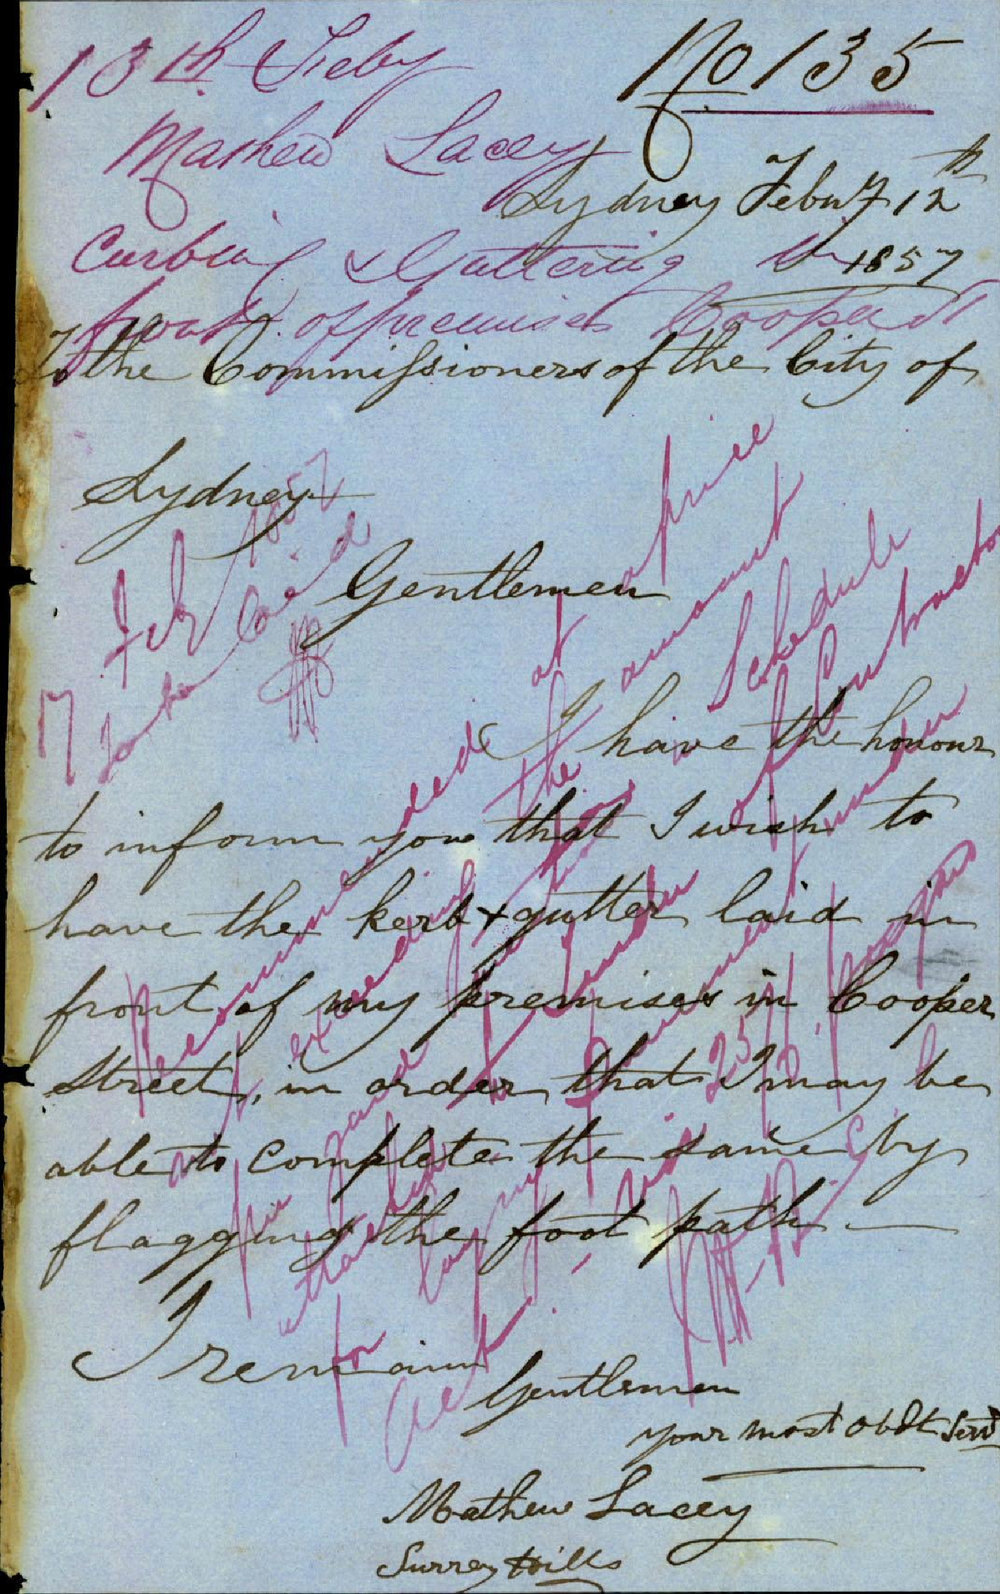 No 135
13th Feby
Mathew Lacey
Curbing & Guttering in
front of premises Cooper St
Sydney Febry 12th
1857
To the Commissioners of the City of
Sydney
Gentlemen
I have the honour
to inform you that I wish to
have the kerb & gutter laid in
front of my premises in Cooper
Street, in order that I may be
able to complete the same by
flagging the foot path —
I remain
Gentlemen
your most obdt Servt
Mathew Lacey
Surrey Hills
17 Feb 1857
to be laid
Recommended at a price
not exceeding the amount
in Schedule
of Contractor
for under
25